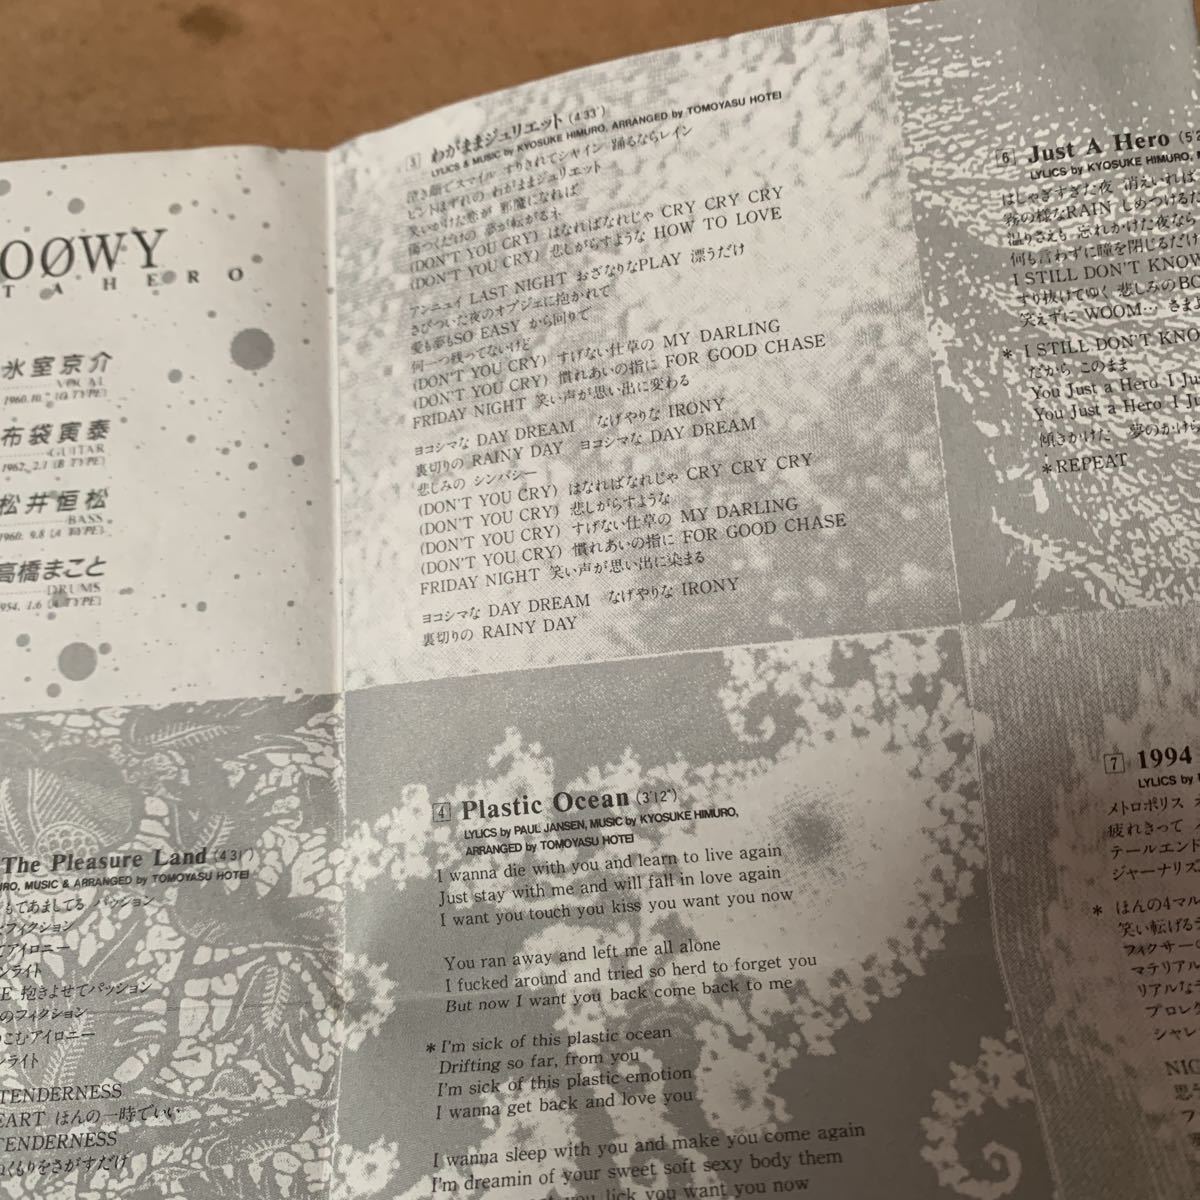 OOØWY
T A H E R O
氷室京介
VOCAL
1960.10.7 (O TYPE)
布袋寅泰
GUITAR
1962. 2.1 (B TYPE)
松井恒松
BASS
1960. 9.8 (A TYPE)
高橋まこと
DRUMS
954. 1.6 (A TYPE)
5 わがままジュリエット (4'33")
LYLICS & MUSIC by KYOSUKE HIMURO, ARRANGED by TOMOYASU HOTEI
泣き顔でスマイル すりきれてシャイン 踊るならレイン
ピントはずれの わがままジュリエット
笑いかけた恋が 邪魔になれば
傷つくだけの 夢が転がるネ
(DON'T YOU CRY) はなればなれじゃ CRY CRY CRY
(DON'T YOU CRY) 悲しがらすような HOW TO LOVE
アンニュイ LAST NIGHT おざなりなPLAY 漂うだけ
さびついた夜のオブジェに抱かれて
愛も夢もSO EASY から回りで
何一つ残ってないけど
(DON'T YOU CRY) すげない仕草の MY DARLING
(DON'T YOU CRY) 慣れあいの指に FOR GOOD CHASE
FRIDAY NIGHT 笑い声が思い出に変わる
ヨコシマな DAY DREAM なげやりな IRONY
裏切りの RAINY DAY ヨコシマな DAY DREAM
悲しみの シンパシー
(DON'T YOU CRY) はなればなれじゃ CRY CRY CRY
(DON'T YOU CRY) 悲しがらすような
(DON'T YOU CRY) すげない仕草の MY DARLING
(DON'T YOU CRY) 慣れあいの指に FOR GOOD CHASE
FRIDAY NIGHT 笑い声が思い出に染まる
ヨコシマな DAY DREAM なげやりな IRONY
裏切りの RAINY DAY
6 Just A Hero (5'2
LYLICS by KYOSUKE HIMURO, M
はしゃぎすぎた夜 消えいれば
霧の様なRAIN しめつけるだ
温りさえも 忘れかけた夜なら
何も言わずに瞳を閉じるだけ
I STILL DON'T KNOW
すり抜けてゆく 悲しみのBO
笑えずに WOOM… さまよ
* I STILL DON'T KNO
だから このまま
You Just a Hero I Jus
You Just a Hero I Just
傾きかけた 夢のかけら
*REPEAT
The Pleasure Land (4'31")
URO, MUSIC & ARRANGED by TOMOYASU HOTEI
もてあましてる パッション
ンフィクション
てアイロニー
ンライト
E 抱きよせてパッション
のフィクション
りこむアイロニー
ンライト
TENDERNESS
EART ほんの一時でいい
TENDERNESS
ぬくもりをさがすだけ
4 Plastic Ocean (3'12")
LYLICS by PAUL JANSEN, MUSIC by KYOSUKE HIMURO,
ARRANGED by TOMOYASU HOTEI
I wanna die with you and learn to live again
Just stay with me and will fall in love again
I want you touch you kiss you want you now
You ran away and left me all alone
I fucked around and tried so herd to forget you
But now I want you back come back to me
* I'm sick of this plastic ocean
Drifting so far, from you
I'm sick of this plastic emotion
I wanna get back and love you
I wanna sleep with you and make you come again
I'm dreamin of your sweet soft sexy body them
you lick you want you now
7 1994
LYLICS by
メトロポリス
疲れきって
テールエンド
ジャーナリス
* ほんの4マル
笑い転げる
フィクサーの
マテリアル
リアルな
プロレタ
シャレ
NIG
思
フ